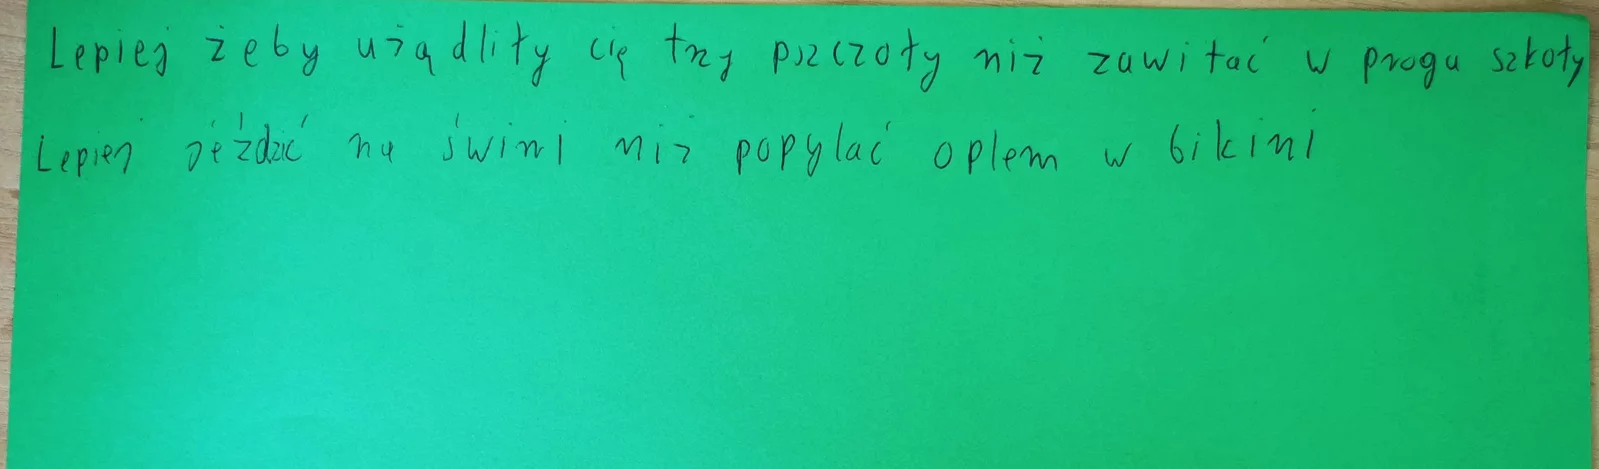 Lepiej żeby użądliły cię trzy pszczoły niż zawitać w progu szkoły
Lepiej jeździć na świni niż popylać oplem w bikini